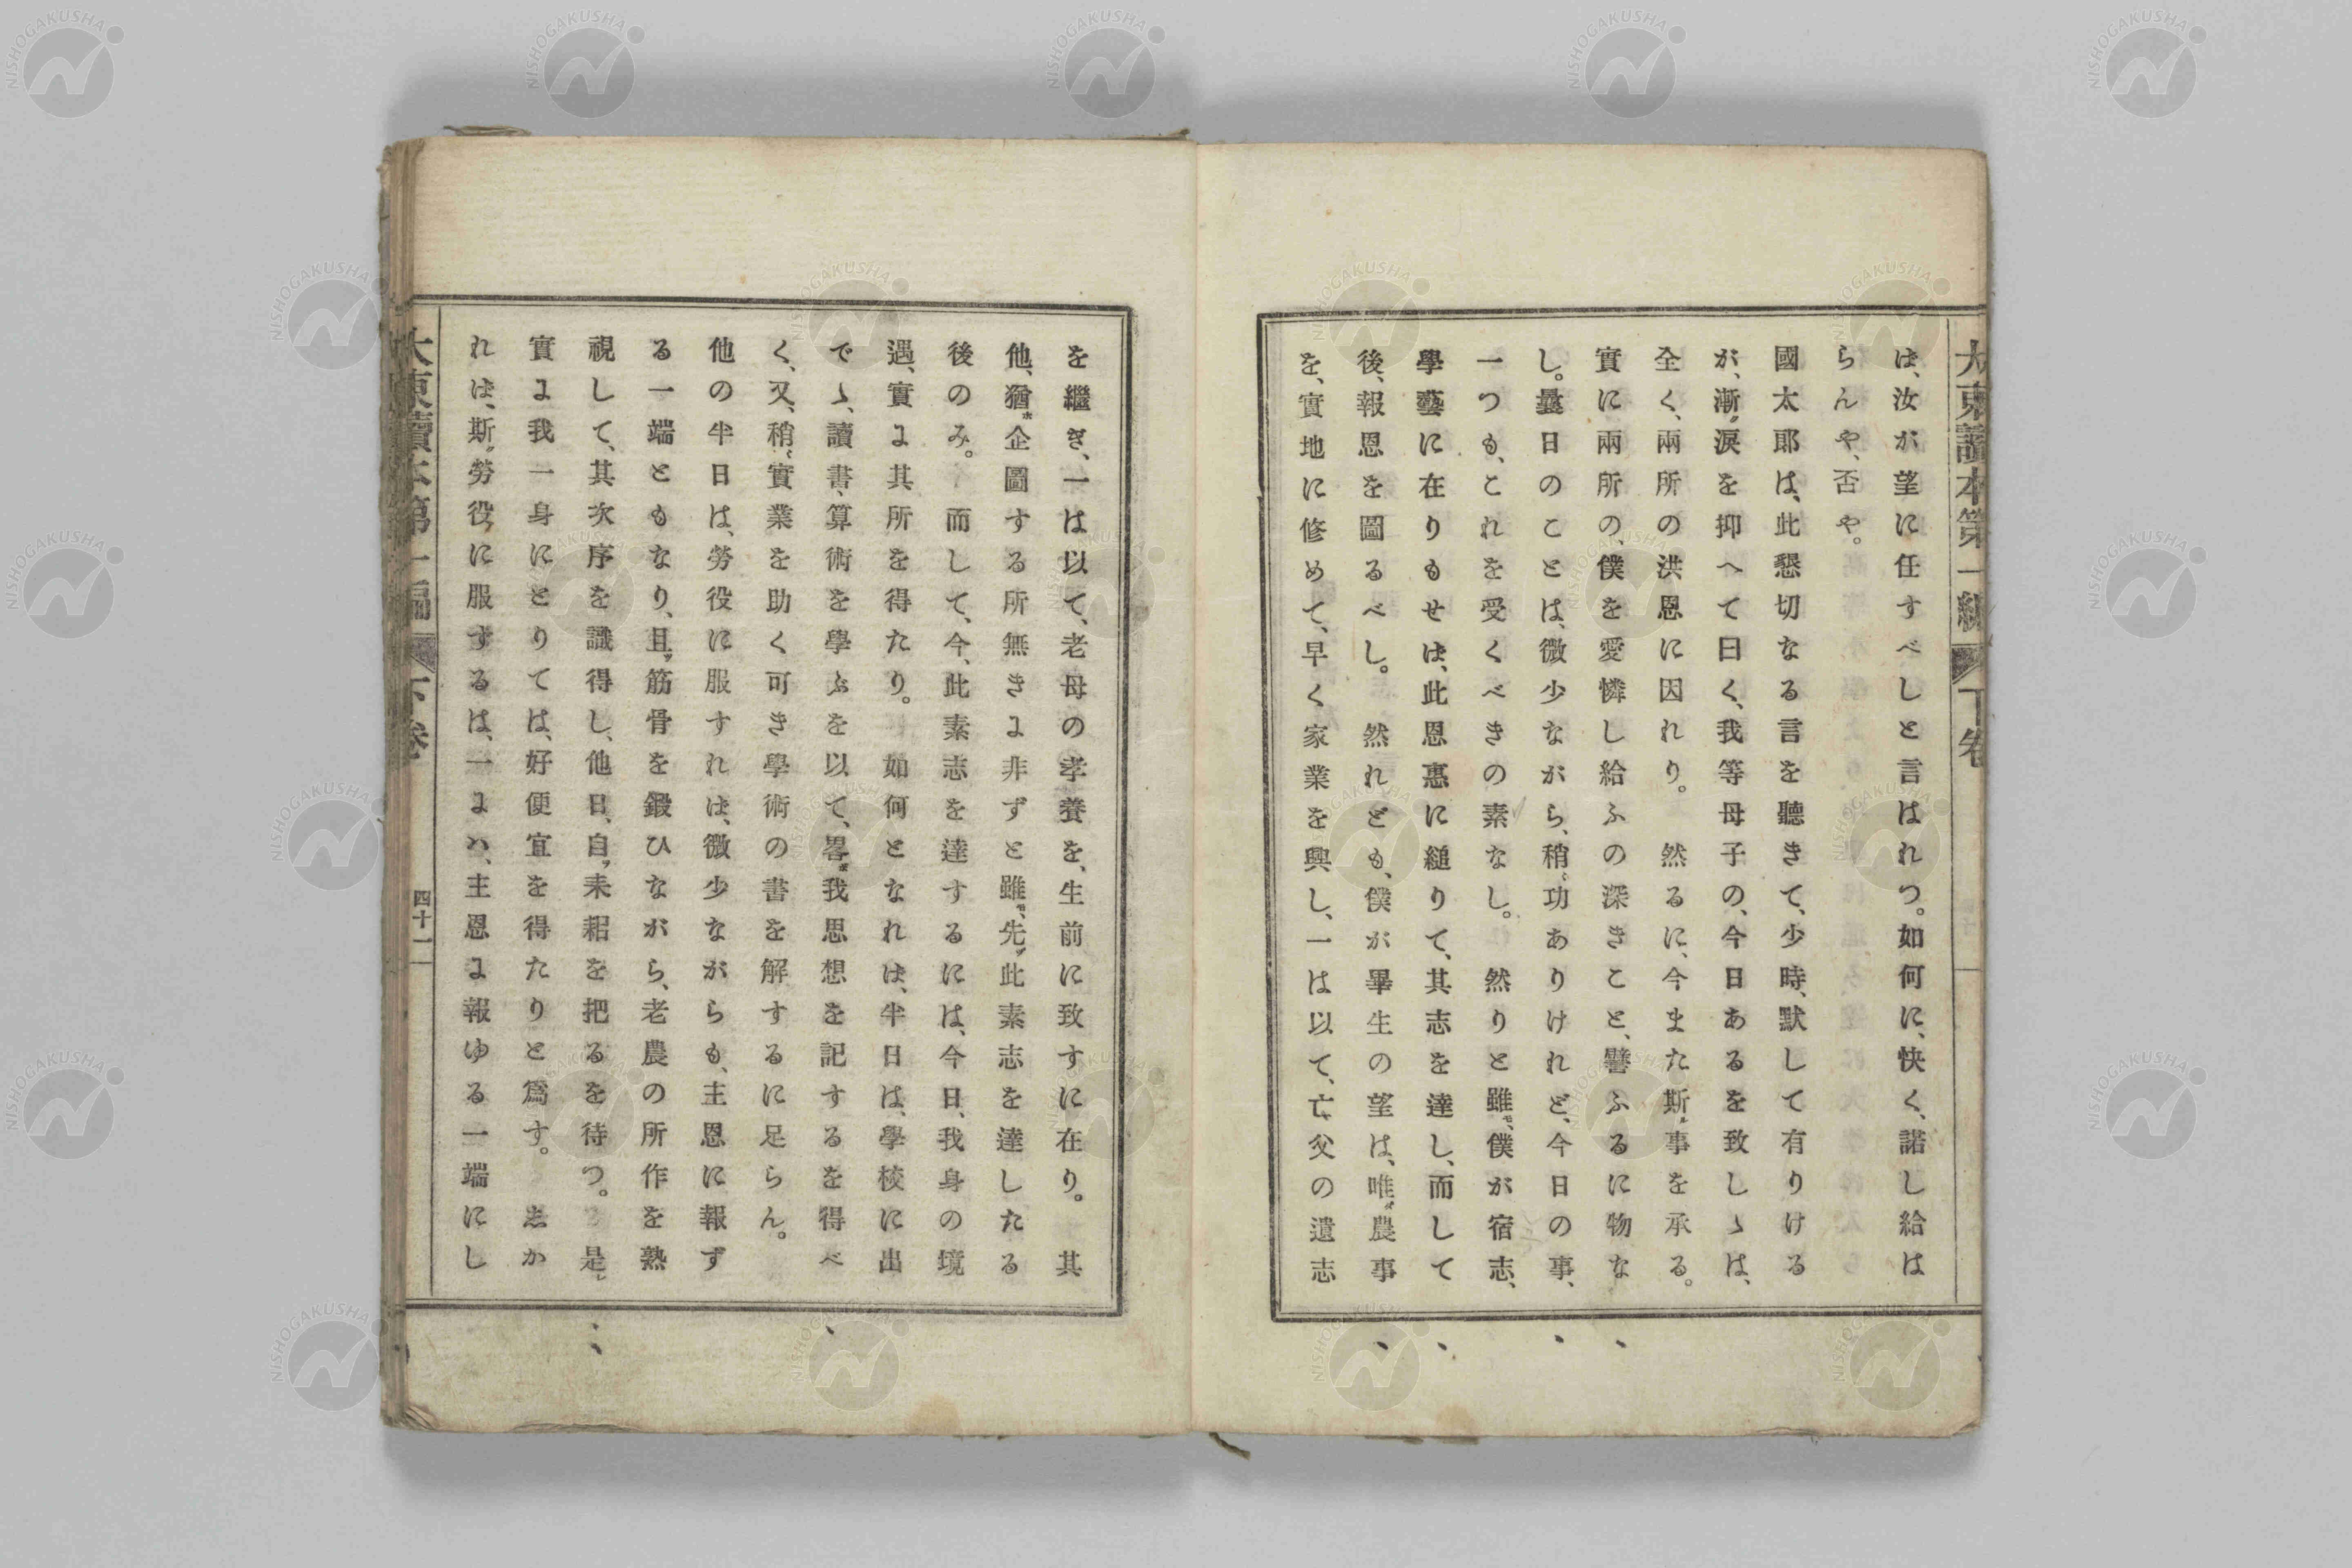 大東讀本第一編 下卷
は、汝が望に任すべしと言はれつ。如何に、快く、諾し給は
らんや、否や。
國太郎は、此懇切なる言を聽きて、少時、默して有りける
が、漸、涙を抑へて曰く、我等母子の、今日あるを致しゝは、
全く、兩所の洪恩に因れり。然るに、今また斯事を承る。
實に兩所の、僕を愛憐し給ふの深きこと、譬ふるに物な
し。曩日のことは、微少ながら、稍功ありけれど、今日の事、
一つも、これを受くべきの素なし。然りと雖、僕が宿志、
學藝に在りもせは、此恩惠に縋りて、其志を達し、而して
後、報恩を圖るべし。然れども、僕が畢生の望は、唯農事
を、實地に修めて、早く家業を興し、一は以て、亡父の遺志
を繼ぎ、一は以て、老母の孝養を、生前に致すに在り。其
他、猶企圖する所無きよ非ずと雖、先此素志を達したる
後のみ。而して、今、此素志を達するには、今日、我身の境
遇、實よ其所を得たり。如何となれは、半日は、學校に出
でゝ、讀書、算術を學ぶを以て、畧我思想を記するを得べ
く、又、稍實業を助く可き學術の書を解するに足らん。
他の半日は、勞役に服すれは、微少ながらも、主恩に報ず
る一端ともなり、且、筋骨を鍛ひながら、老農の所作を熟
視して、其次序を識得し、他日、自耒耜を把るを待つ。是
實よ我一身にとりては、好便宜を得たりと爲す。志か
れは、斯勞役に服するは、一よハ、主恩よ報ゆる一端にし
大東讀本第一編 下卷 四十一